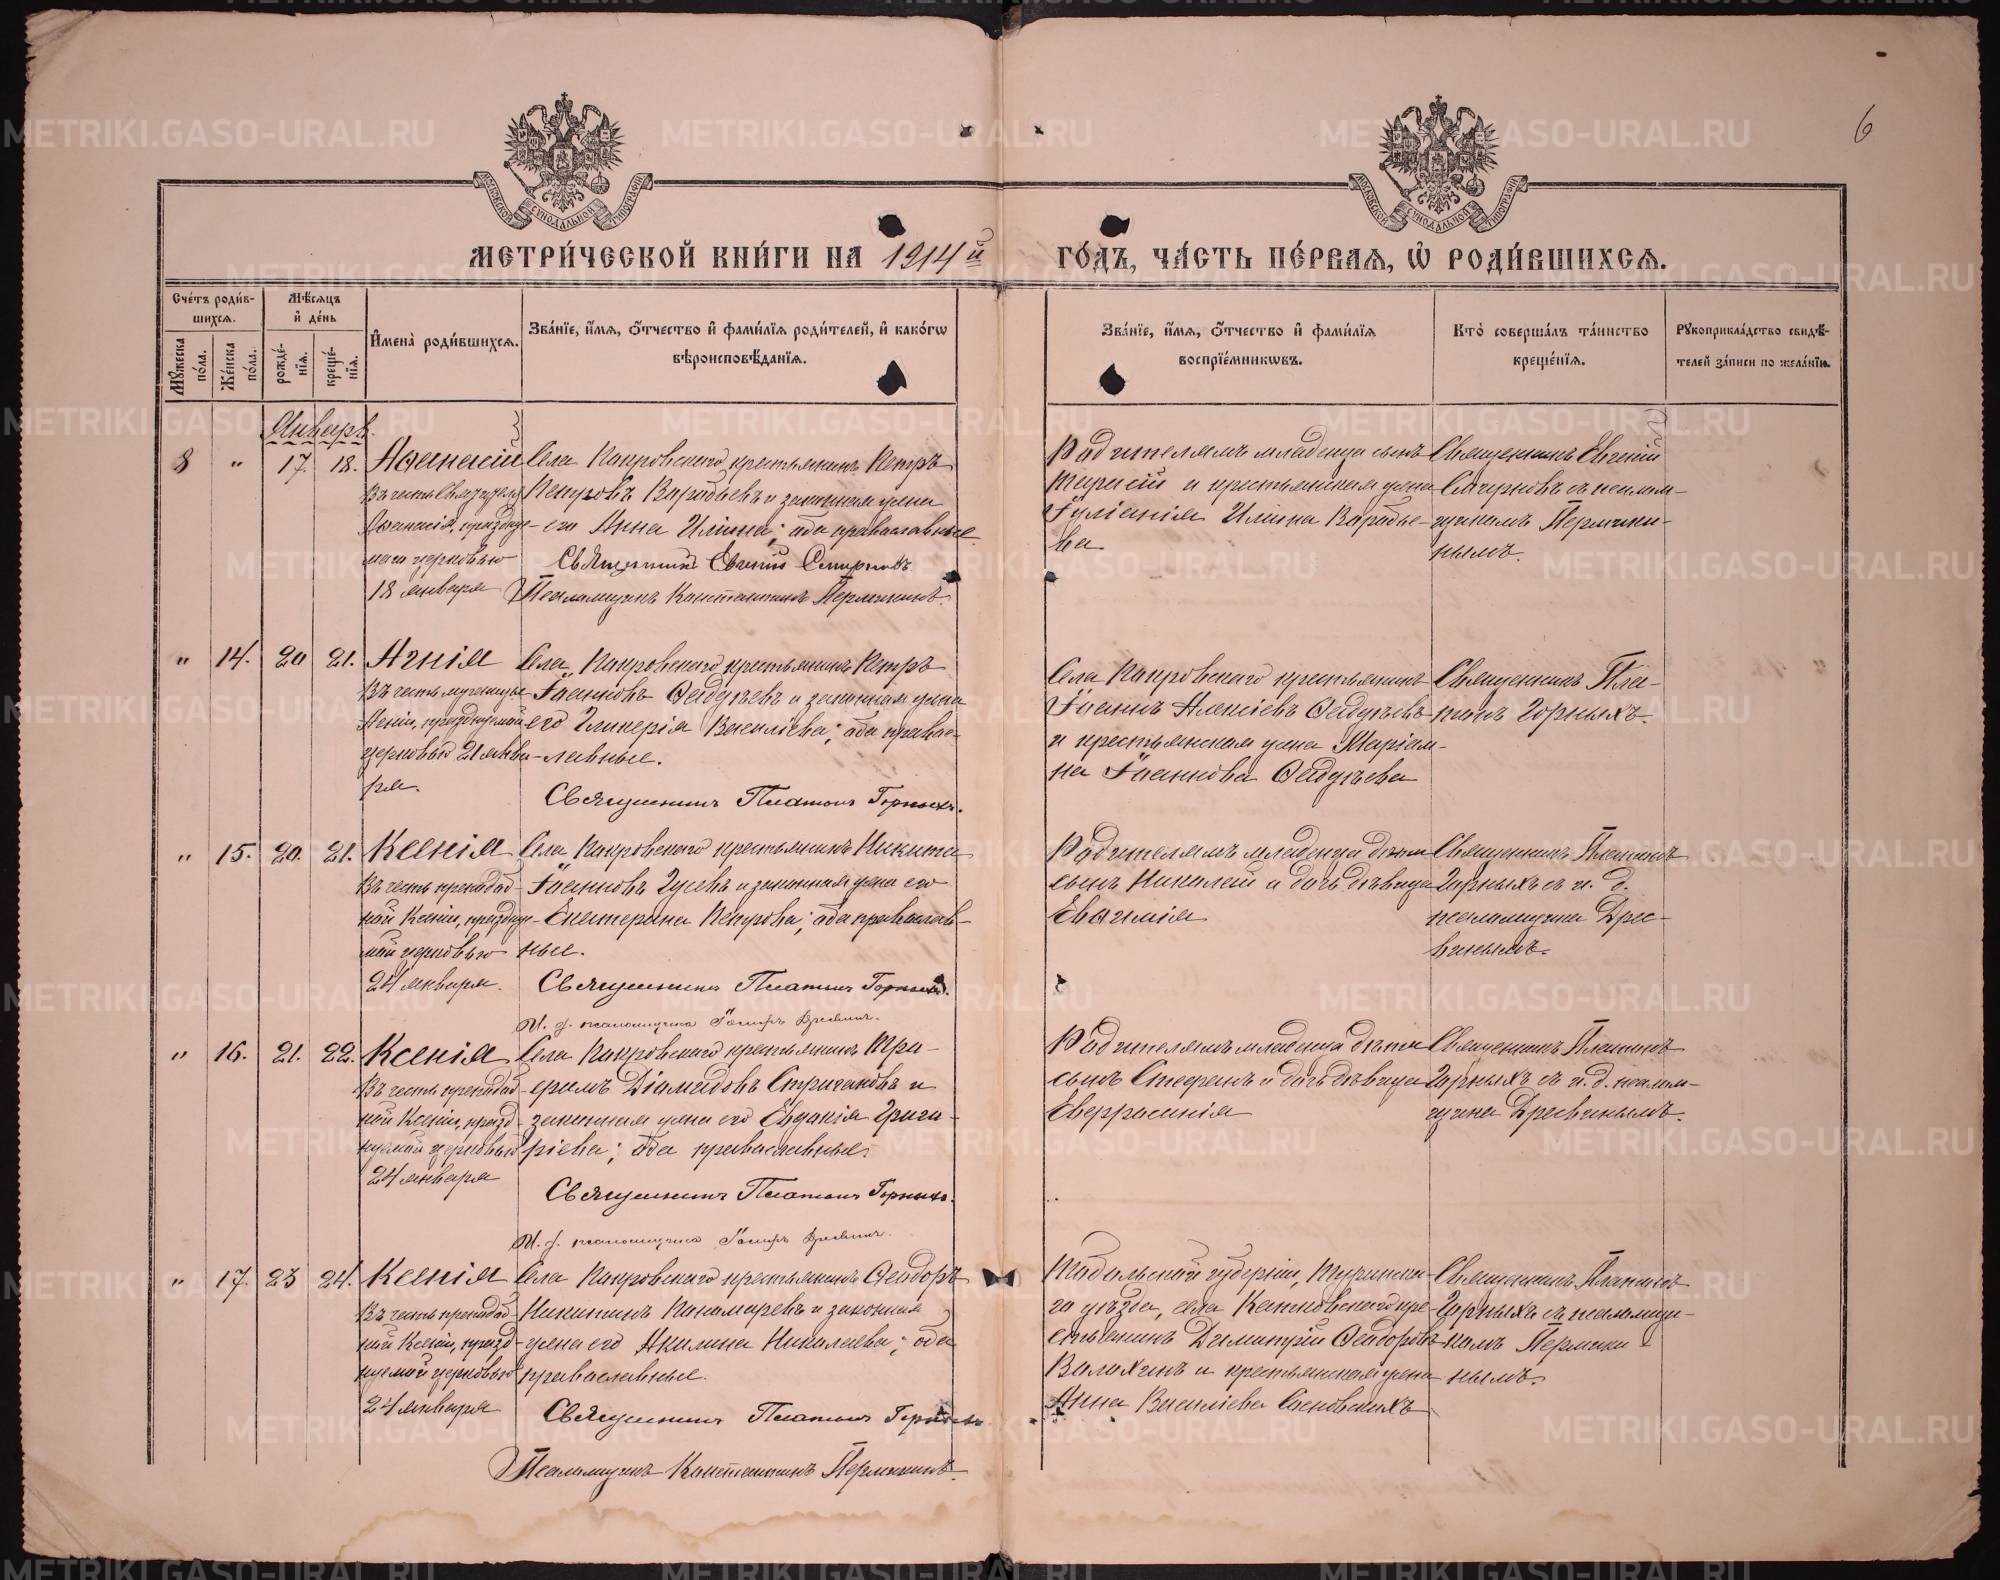 6
МОСКОВСКОЙ СУНОДАЛЬНОЙ ТИПОГРАФІИ
МОСКОВСКОЙ СУНОДАЛЬНОЙ ТИПОГРАФІИ
МЕТРИ́ЧЕСКОЙ КНИ́ГИ НА 1914й ГО́ДЪ, ЧА́СТЬ ПЕ́РВАѦ, Ѡ҆ РОДИ́ВШИХСѦ.
Счётъ роди́в-
шихсѧ.
Мꙋ́жеска по́ла.
Же́нска по́ла.
Мѣ́сѧцъ и҆ де́нь
рожде́-нїѧ.
креще́-нїѧ.
И҆мена̀ роди́вшихсѧ.
Зва́нїе, и҆́мѧ, ѻ҆́тчество и҆ фами́лїѧ роди́телей, и҆ како́гѡ
вѣроисповѣ́данїѧ.
Зва́нїе, и҆́мѧ, ѻ҆́тчество и҆ фами́лїѧ
воспрїе́мникѡвъ.
Кто̀ соверша́лъ та́инство
креще́нїѧ.
Рꙋкоприкла́дство свидѣ́-
телей за́писи по жела́нїю.
Январь.
8 " 17. 18. Аѳанасій
Въ честь Святителя
Аѳанасія, празднуе-
маго церковью
18 января
Села Покровскаго крестьянинъ Петръ
Петровъ Воробьевъ и законная жена
его Анна Ильина; оба православные.
Священникъ Евгений Смирновъ
Псаломщикъ Константинъ Пермикинъ.
Родителямъ младенца сынъ
и крестьянская жена
Іуліанія Ильина Воробье-
ва
Священникъ Евгеній
Смирновъ съ псалом-
щикомъ Пермики-
нымъ.
" 14. 20 21. Агнія
Въ честь мученицы
Агніи, празднуемой
церковью 21 янва-
ря.
Села Покровскаго крестьянинъ Петръ
Іоанновъ Ѳедуловъ и законная жена
его Гликерія Васильева; оба правос-
лавные.
Священникъ Платонъ Горныхъ.
Села Покровскаго крестьянинъ
Іоаннъ Алексіевъ
и крестьянская жена Маріам-
на Іоаннова
Священникъ Пла-
тонъ Горныхъ.
" 15. 20. 21. Ксенія
Въ честь преподоб-
ной Ксеніи, праздну-
мой церковью
24 января.
Села Покровскаго крестьянинъ Никита
Іоанновъ Гусевъ и законная жена его
Екатерина Петрова; оба православ-
ные.
Священникъ Платонъ Горныхъ.
И. д. псаломщика Дресвинъ.
Родителямъ младенца дѣти
сынъ Николай и дочь дѣвица
Евѳимія
Священникъ Платонъ
Горныхъ съ и. д.
псаломщика Дрес-
винымъ.
" 16. 21. 22. Ксенія
Въ честь преподоб-
ной Ксеніи, празд-
нуемой церковью
24 января
Села Покровскаго крестьянинъ Тро-
фимъ Діомидовъ Стригановъ и
законная жена его Евдокія Григо-
ріева; оба православные.
Священникъ Платонъ Горныхъ.
И. д. псаломщика Дресвинъ.
Родителямъ младенца дѣти
сынъ Стефанъ и дочь дѣвица
Евфросинія
Священникъ Платонъ
Горныхъ съ и. д. псалом-
щика Дресвинымъ.
" 17. 23 24. Ксенія
Въ честь преподоб-
ной Ксеніи, празд-
нуемой церковью
24 января
Села Покровскаго крестьянинъ Ѳеодоръ
Никитинъ Пономаревъ и законная
жена его Акилина Николаева; оба
православные.
Священникъ Платонъ Горныхъ
Псаломщикъ Константинъ Пермикинъ.
Тобольской губерніи, Туринска-
го уѣзда, села кре-
стьянинъ Димитрій Ѳеодоровъ
Волохинъ и крестьянская жена
Анна Васильева Сосновскихъ
Священникъ Платонъ
Горныхъ съ псаломщи-
комъ Пермики-
нымъ.
METRIKI.GASO-URAL.RU